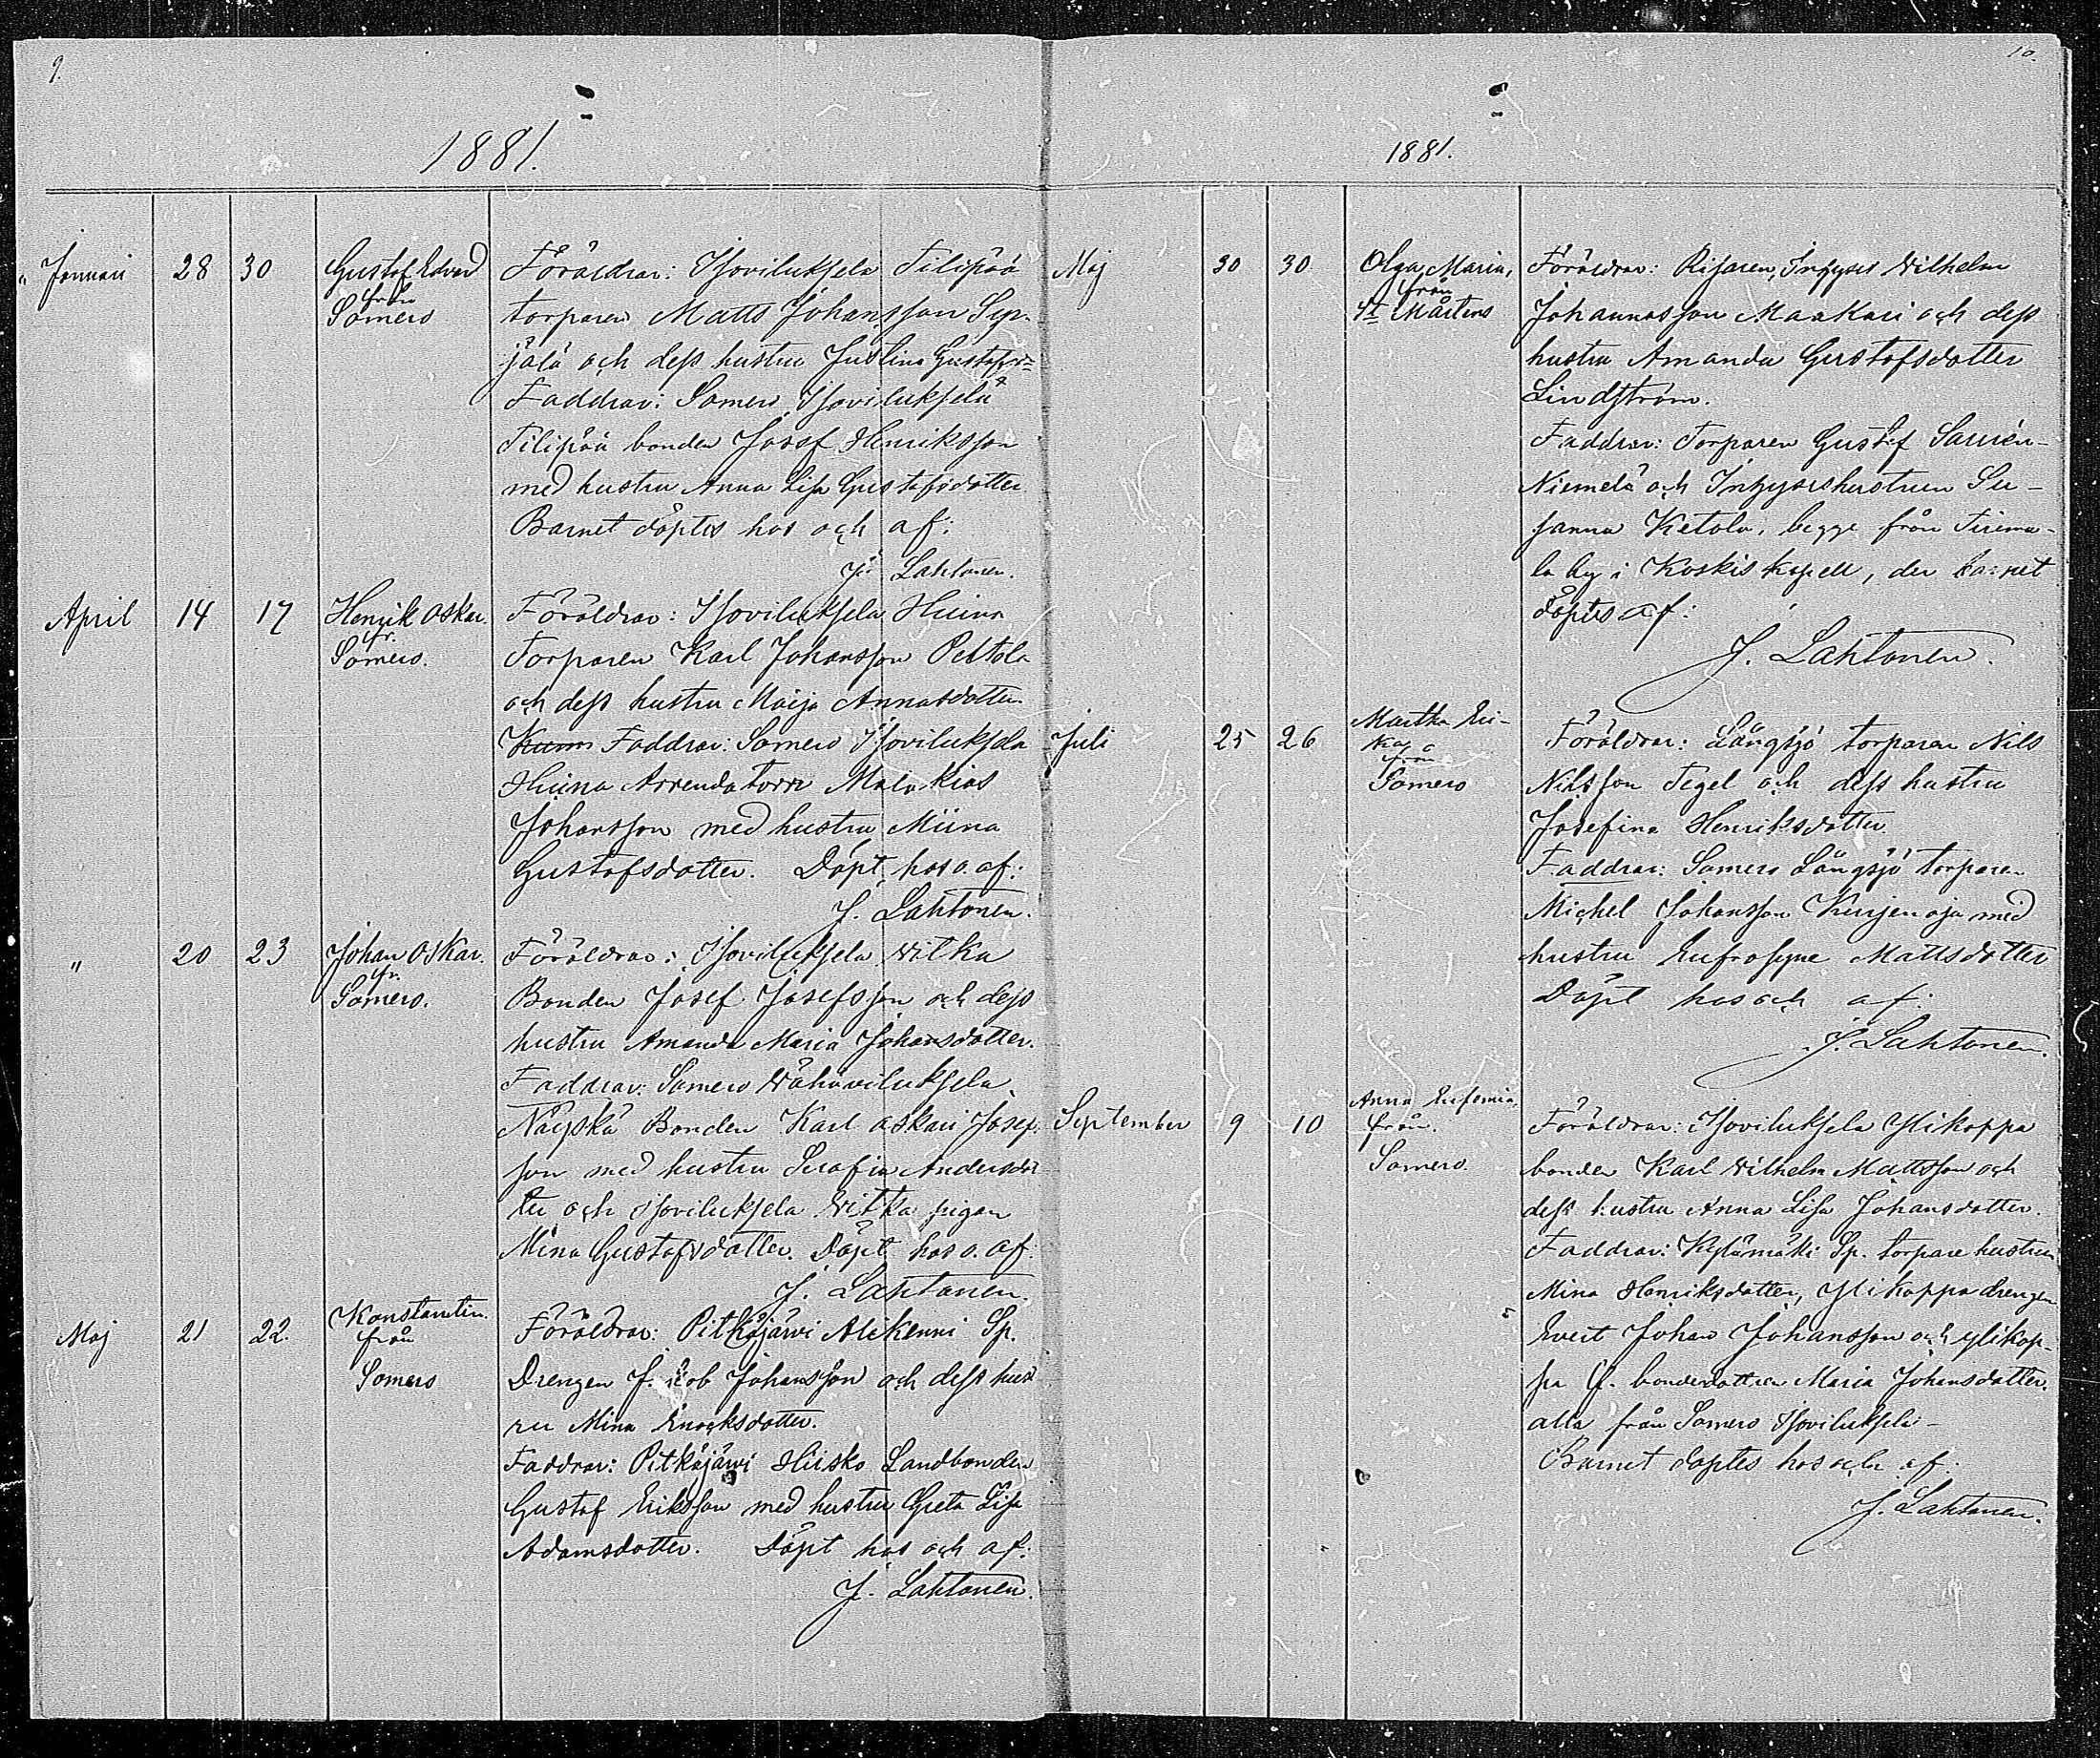 9.
1881.
Januari 28 30 Gustaf Edvard från Somero
Föräldrar: Isoviluksela Tilipää
torparen Matts Johansson Sep-
jälä och dess hustru Justina Gustafsd:r
Faddrar: Somero Isoviluksela
Tilipää bonden Josef Henriksson
med hustru Anna Lisa Gustafsdotter
Barnet döptes hos och af:
J. Lahtonen.
April 14 17 Henrik Oskar. fr. Somero.
Föräldrar: Isoviluksela Hiina
Torparen Karl Johansson Peltola
och dess hustru Maija Annasdotter
Faddrar: Somero Isoviluksela
Hiina Arrendatorn Malakias
Johansson med hustru Miina
Gustafsdotter. Döpt hos o. af:
J. Lahtonen.
" 20 23 Johan Oskar. fr. Somero.
Föräldrar: Isoviluksela Witka
Bonden Josef Josefsson och dess
hustru Amanda Maria Johansdotter.
Faddrar: Somero Wähäviluksela
Näyskä Bonden Karl Oskari Josef-
son med hustru Serafia Andersdot
ter och Isoviluksela Witka pigan
Mina Gustafsdotter. Döpt hos o. af:
J. Lahtonen.
Maj 21 22. Konstantin. från Somero
Föräldrar: Pitkäjärvi Alikenni Sp.
Drengen Jakob Johansson och dess hust
ru Mina Enocksdotter.
Faddrar: Pitkäjärvi Hirsko Landbonden
Gustaf Eriksson med hustru Greta Lisa
Adamsdotter. Döpt hos och af:
J. Lahtonen.
10.
1881.
Maj 30 30 Olga Maria, från St Mårtens
Föräldrar: Inhyses Wilhelm
Johannasson Maakari och dess
hustru Amanda Gustafsdotter
Lindström.
Faddrar: Torparen Gustaf
Niemelä och Inhyseshustrun Su-
sanna Ketola, begge från Tiima-
la by i Koskis kapell, der barnet
döptes af:
J. Lahtonen.
Juli 25 26 Martha Eri-
ka från Somero
Föräldrar: Långsjö torparen Nils
Nilsson Tegel och dess hustru
Josefina Henriksdotter.
Faddrar: Somero Långsjö torparen
Michel Johansson Kurjenoja med
hustru Eufrosyne Mattsdotter
Döpt hos och af:
J. Lahtonen.
September 9 10 Anna Eufemia, från. Somero.
Föräldrar: Isoviluksela Ylikoppa
bonden Karl Wilhelm Mattsson och
dess hustru Anna Lisa Johansdotter.
Faddrar: Kylämäki Sp. torpare hustrun
Mina Henriksdotter, Ylikoppa drengen
Evert Johan Johansson och Ylikop-
pa bondedottren Maria Johansdotter.
alla från Somero Isoviluksela -
Barnet döptes hos och af:
J. Lahtonen.